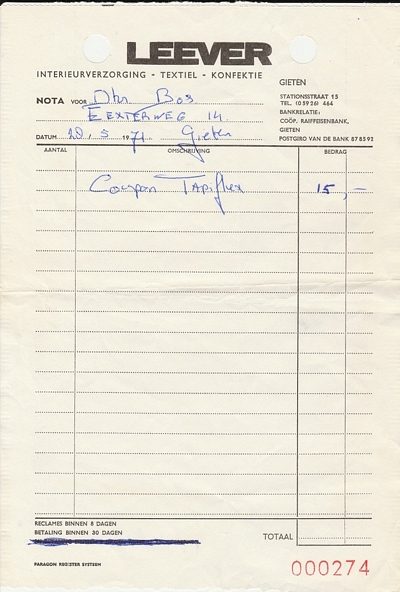 LEEVER
INTERIEURVERZORGING - TEXTIEL - KONFEKTIE
GIETEN
STATIONSSTRAAT 15
TEL. (05926) 464
BANKRELATIE:
COÖP. RAIFFEISENBANK,
GIETEN
POSTGIRO VAN DE BANK 878592
NOTA VOOR Dhr Bos
EEXTERWEG 14
DATUM 20, 5 1971 Gieten
AANTAL OMSCHRIJVING BEDRAG
Coupon Tapiflex 15,-
RECLAMES BINNEN 8 DAGEN
BETALING BINNEN 30 DAGEN
TOTAAL
000274
PARAGON REGISTER SYSTEEM